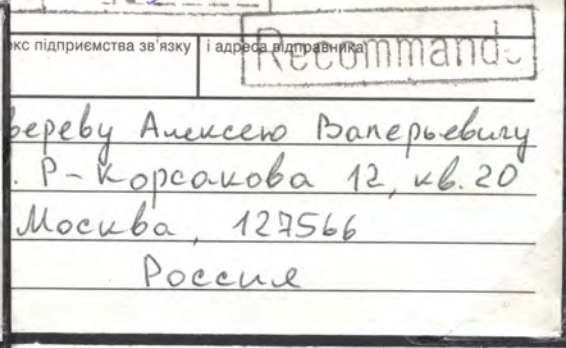 екс підприємства зв'язку і адреса відправника
Recommandé
вереву Алексею Валерьевичу
. Р-Корсакова 12, кв. 20
Москва, 127566
Россия